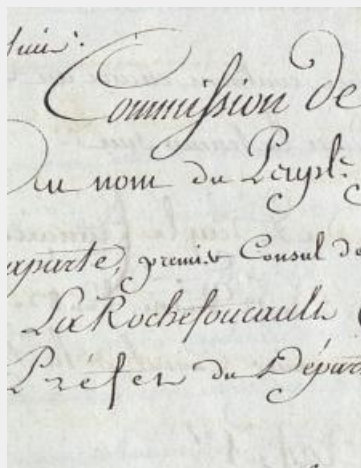 Commission de
Au nom du Peuple
aparte, premier Consul de
La Rochefoucault
Préfet du Départ